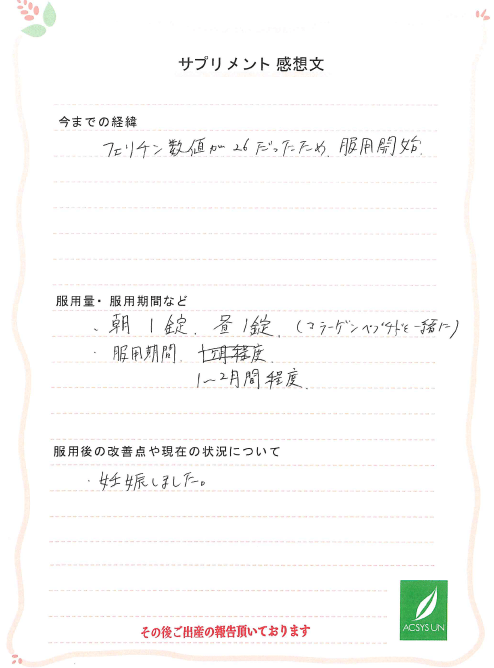 サプリメント 感想文
今までの経緯
フェリチン数値が26だったため、服用開始.
服用量・服用期間など
・朝 1錠、昼1錠、(コラーゲンペプチドと一緒に)
・服用期間、
1〜2月間程度、
服用後の改善点や現在の状況について
・妊娠しました。
ACSYS UN
その後ご出産の報告頂いております